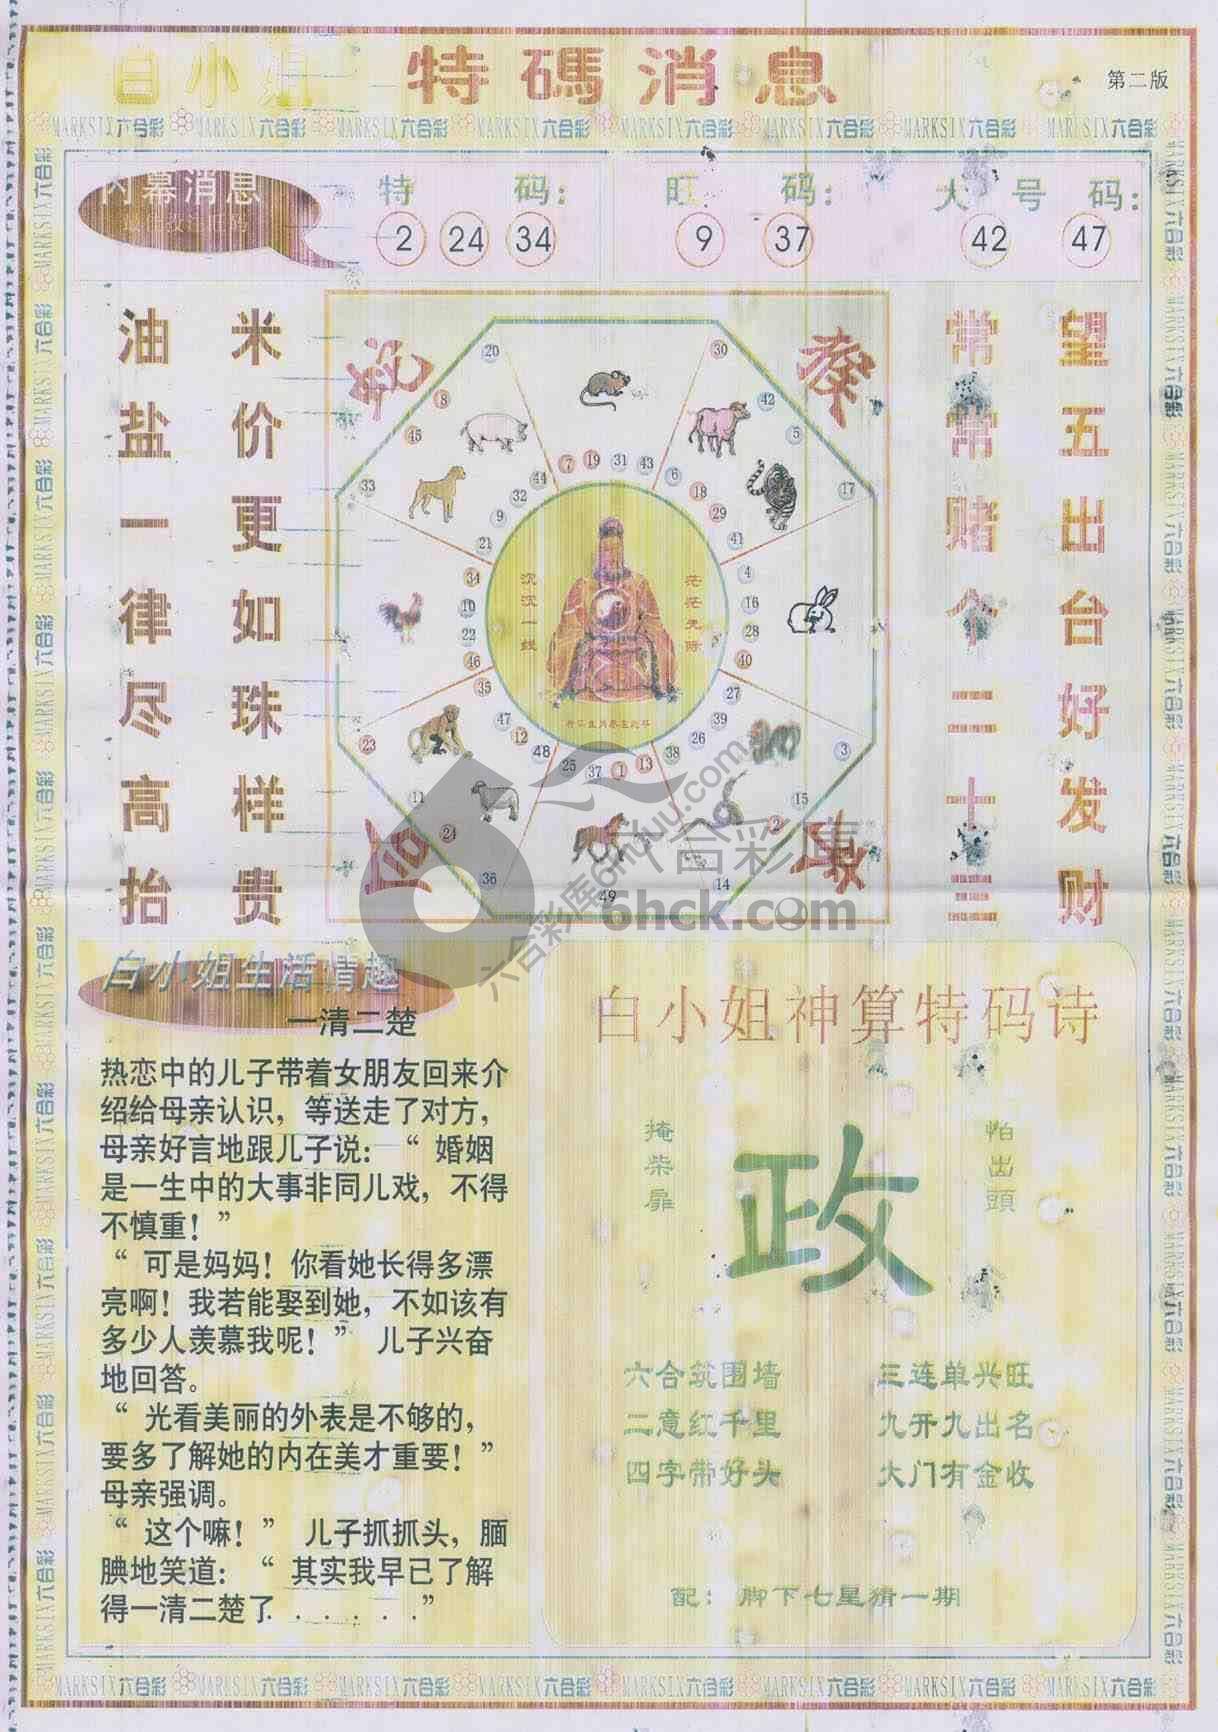 白小姐 特碼消息
第二版
MARKSIX六合彩 MARKSIX六合彩 MARKSIX六合彩 MARKSIX六合彩 MARKSIX六合彩 MARKSIX六合彩 MARKSIX六合彩 MARKSIX六合彩
内幕消息
特 码：
2 24 34
旺 码：
9 37
大 号 码：
42 47
油盐一律尽高抬
米价更如珠样贵
常常赌个二十三
望五出台好发财
20 30
8 42
45 5
33 17
44 7 19 31 43 6
32 18
9 29
21 41
34 4
10 16
22 28
46 40
35 27
47 39
12 26
48 25 37 1 13 38
23 3
11 15
24 2
36 14
49
沉沉一线
茫茫无际
六合彩库
6hck.com
六合彩库6hcku.com
白小姐生活情趣
一清二楚
热恋中的儿子带着女朋友回来介
绍给母亲认识，等送走了对方，
母亲好言地跟儿子说：“ 婚姻
是一生中的大事非同儿戏，不得
不慎重！”
“ 可是妈妈！你看她长得多漂
亮啊！我若能娶到她，不如该有
多少人羡慕我呢！” 儿子兴奋
地回答。
“ 光看美丽的外表是不够的，
要多了解她的内在美才重要！”
母亲强调。
“ 这个嘛！” 儿子抓抓头，腼
腆地笑道：“ 其实我早已了解
得一清二楚了 . . . . . .”
白小姐神算特码诗
掩柴扉
政
怕出頭
六合筑围墙 三连单兴旺
二意红千里 九开九出名
四字带好头 大门有金收
配：脚下七星猜一期
MARKSIX六合彩 MARKSIX六合彩 MARKSIX六合彩 MARKSIX六合彩 MARKSIX六合彩 MARKSIX六合彩 MARKSIX六合彩 MARKSIX六合彩